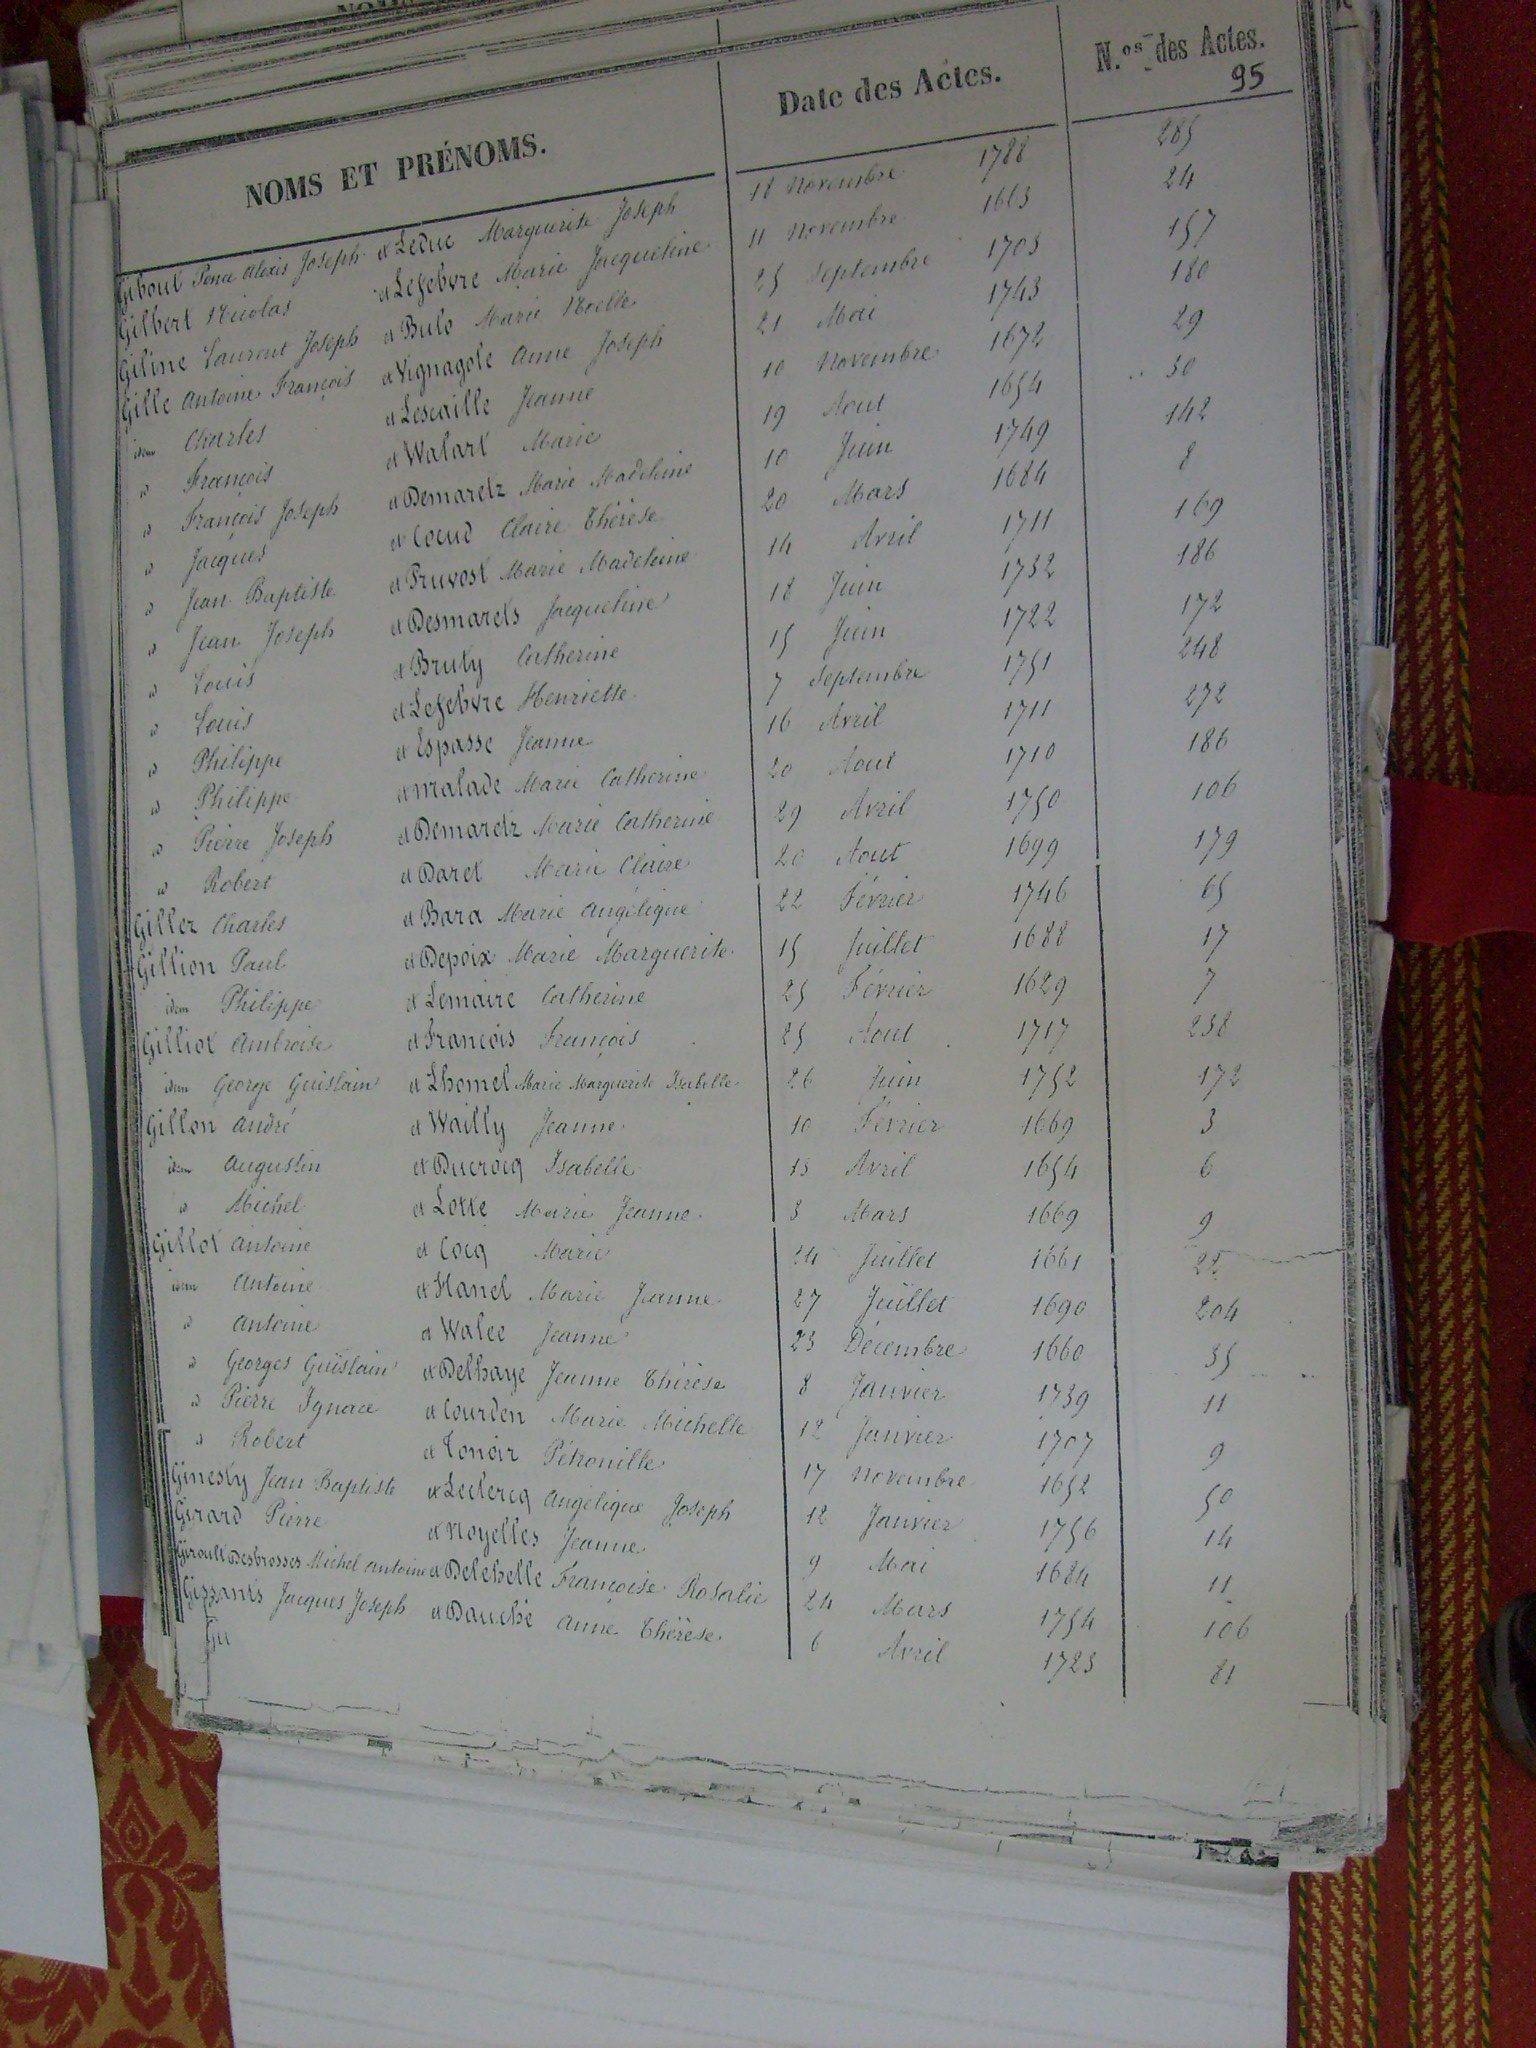 NOMS ET PRÉNOMS. Date des Actes. N.os des Actes.
95
Giboul Alexis Joseph et Leduc Marguerite Joseph 18 Novembre 1788 285
Gilbert Nicolas et Lefebvre Marie Jacqueline 11 Novembre 1663 24
Giline Laurent Joseph et Bulo Marie Noelle 25 Septembre 1703 157
Gille Antoine François et Vignagole Anne Joseph 21 Mai 1743 180
idem Charles et Lescaille Jeanne 10 Novembre 1672 29
id François et Walart Marie 19 Aout 1654 30
id François Joseph et Demaretz Marie Madeleine 10 Juin 1749 142
id Jacques et Coeud Claire Thérèse 20 Mars 1684 8
id Jean Baptiste et Pruvost Marie Madeleine 14 Avril 1711 169
id Jean Joseph et Desmarets Jacqueline 18 Juin 1732 186
id Louis et Bruty Catherine 15 Juin 1722 172
id Louis et Lefebvre Henriette 7 Septembre 1751 248
id Philippe et Espasse Jeanne 16 Avril 1711 272
id Philippe et Malade Marie Catherine 20 Aout 1710 186
id Pierre Joseph et Demaretz Marie Catherine 29 Avril 1750 106
id Robert et Daret Marie Claire 20 Aout 1699 179
Gillez Charles et Bara Marie Angélique 22 Février 1746 65
Gillion Paul et Depoix Marie Marguerite 15 Juillet 1688 17
idem Philippe et Lemaire Catherine 25 Février 1629 7
Gilliot Ambroise et François François 25 Aout 1717 238
idem George Guislain et Lhomel Marie Marguerite Isabelle 26 Juin 1752 172
Gillon André et Wailly Jeanne 10 Février 1669 3
idem Augustin et Ducrocq Isabelle 13 Avril 1654 6
id Michel et Lotte Marie Jeanne 3 Mars 1669 9
Gillot Antoine et Cocq Marie 14 Juillet 1661 22
idem Antoine et Hanel Marie Jeanne 27 Juillet 1690 204
id Antoine et Walee Jeanne 23 Décembre 1660 35
id Georges Guislain et Delhaye Jeanne Thérèse 8 Janvier 1739 11
id Pierre Ignace et Courden Marie Michelle 12 Janvier 1707 9
id Robert et Tonoir Pétronille 17 Novembre 1652 50
Ginesty Jean Baptiste et Leclercq Angélique Joseph 12 Janvier 1756 14
Girard Pierre et Noyelles Jeanne 9 Mai 1684 11
Giroult Desbrosses Michel Antoine et Delehelle Françoise Rosalie 24 Mars 1754 106
Gizzants Jacques Joseph et Dauché Anne Thérèse 6 Avril 1723 81